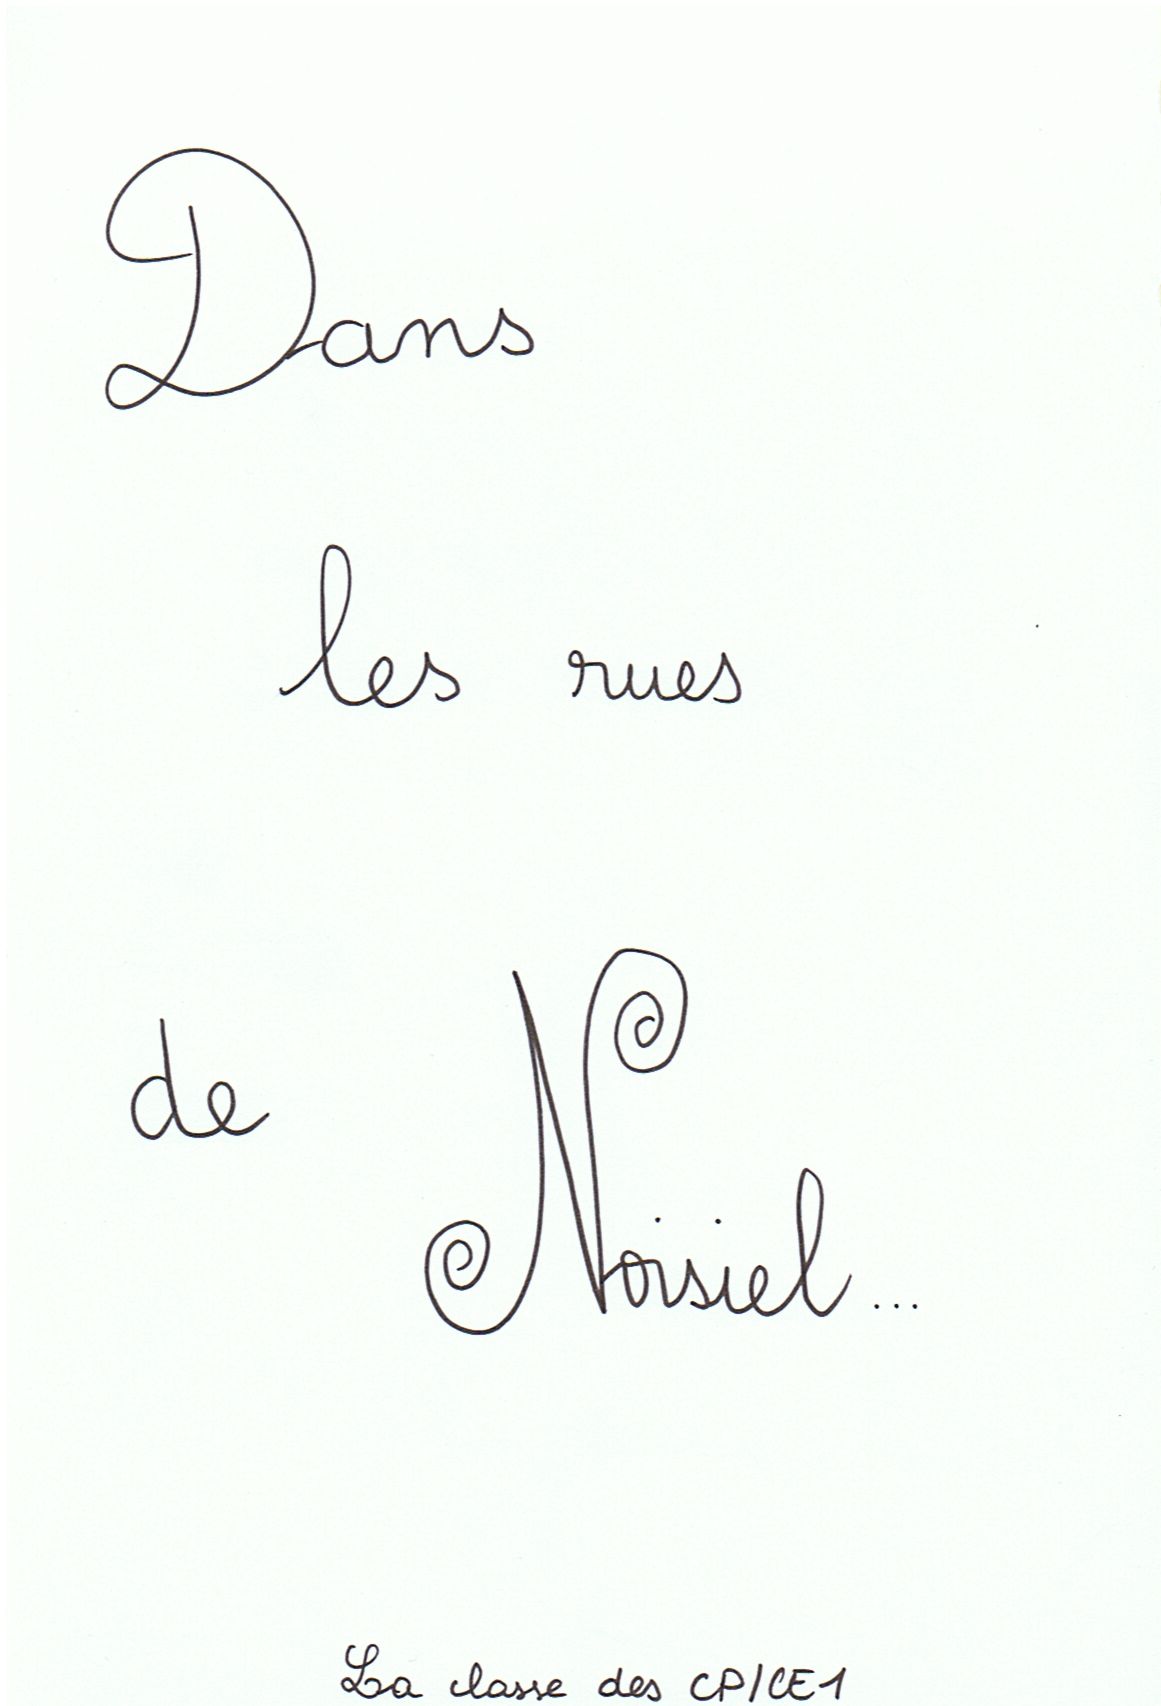 Dans
les rues
de Noisiel...
La classe des CP/CE1